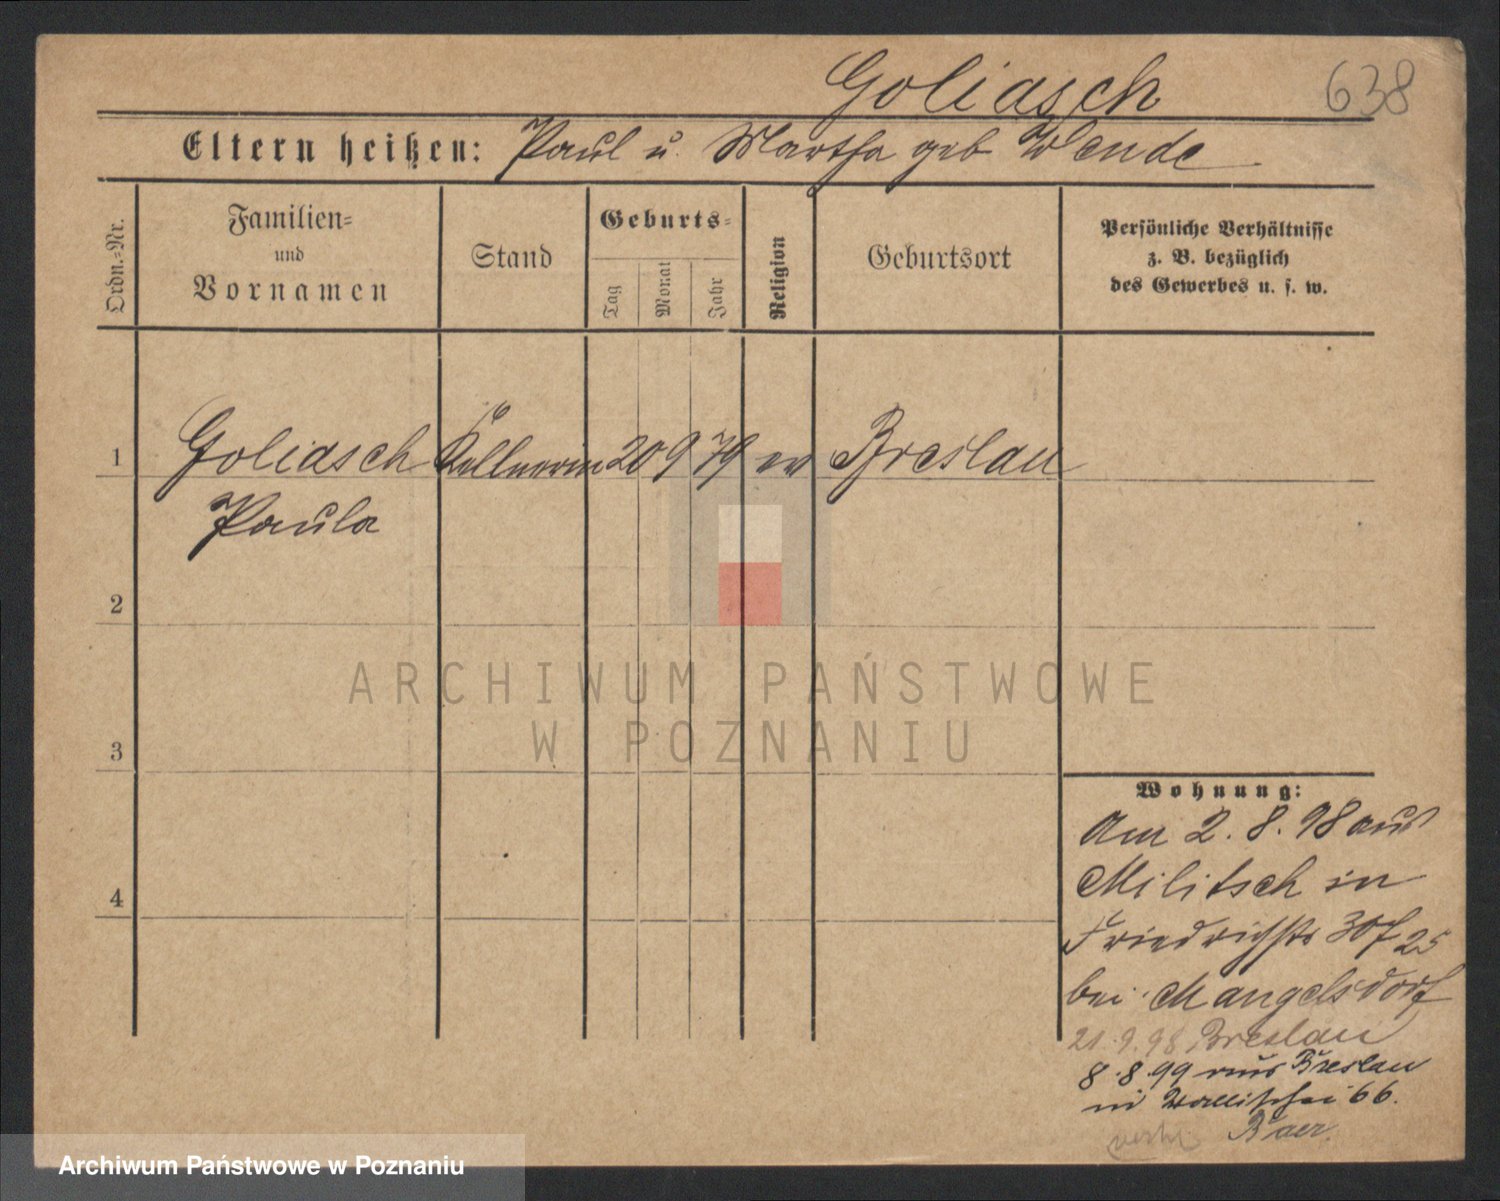 Goliasch 638
Eltern heißen: Paul u. Martha geb Wende
Ordn.-Nr.
Familien-
und
Vornamen
Stand
Geburts-
Tag
Monat
Jahr
Religion
Geburtsort
Persönliche Verhältnisse
z. B. bezüglich
des Gewerbes u. s. w.
1 Goliasch Kellnerin 20 9 79 ev Breslau
Paula
2
ARCHIWUM PAŃSTWOWE
W POZNANIU
3
Wohnung:
Am 2.8.98 aus
Militsch in
4
Friedrichstr 30 25
bei Mangelsdorf
21.9.98 Breslau
8.8.99 aus Breslau
in Wallischei 66.
Baer.
Archiwum Państwowe w Poznaniu